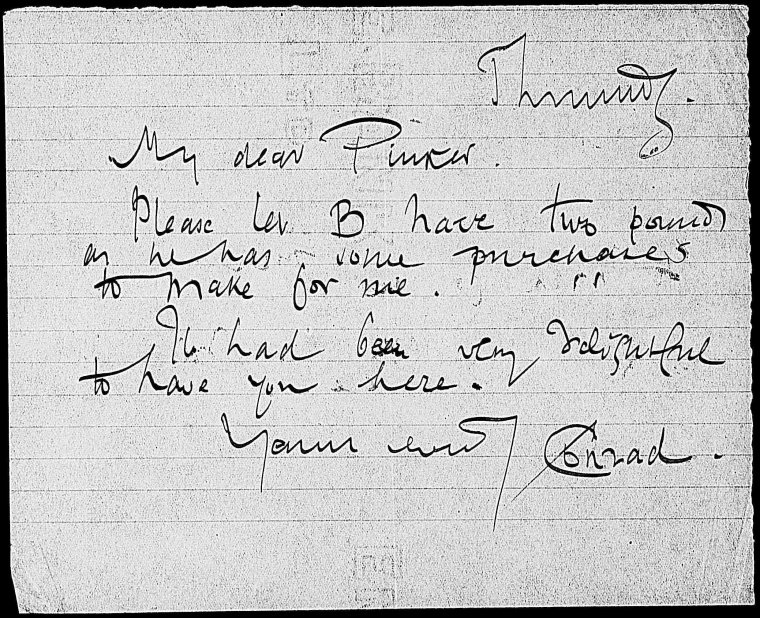 Thursday.
My dear Pinker.
Please let B have two pounds
as he has some purchases
to make for me.
It had been very delightful
to have you here.
Yours ever
Conrad.